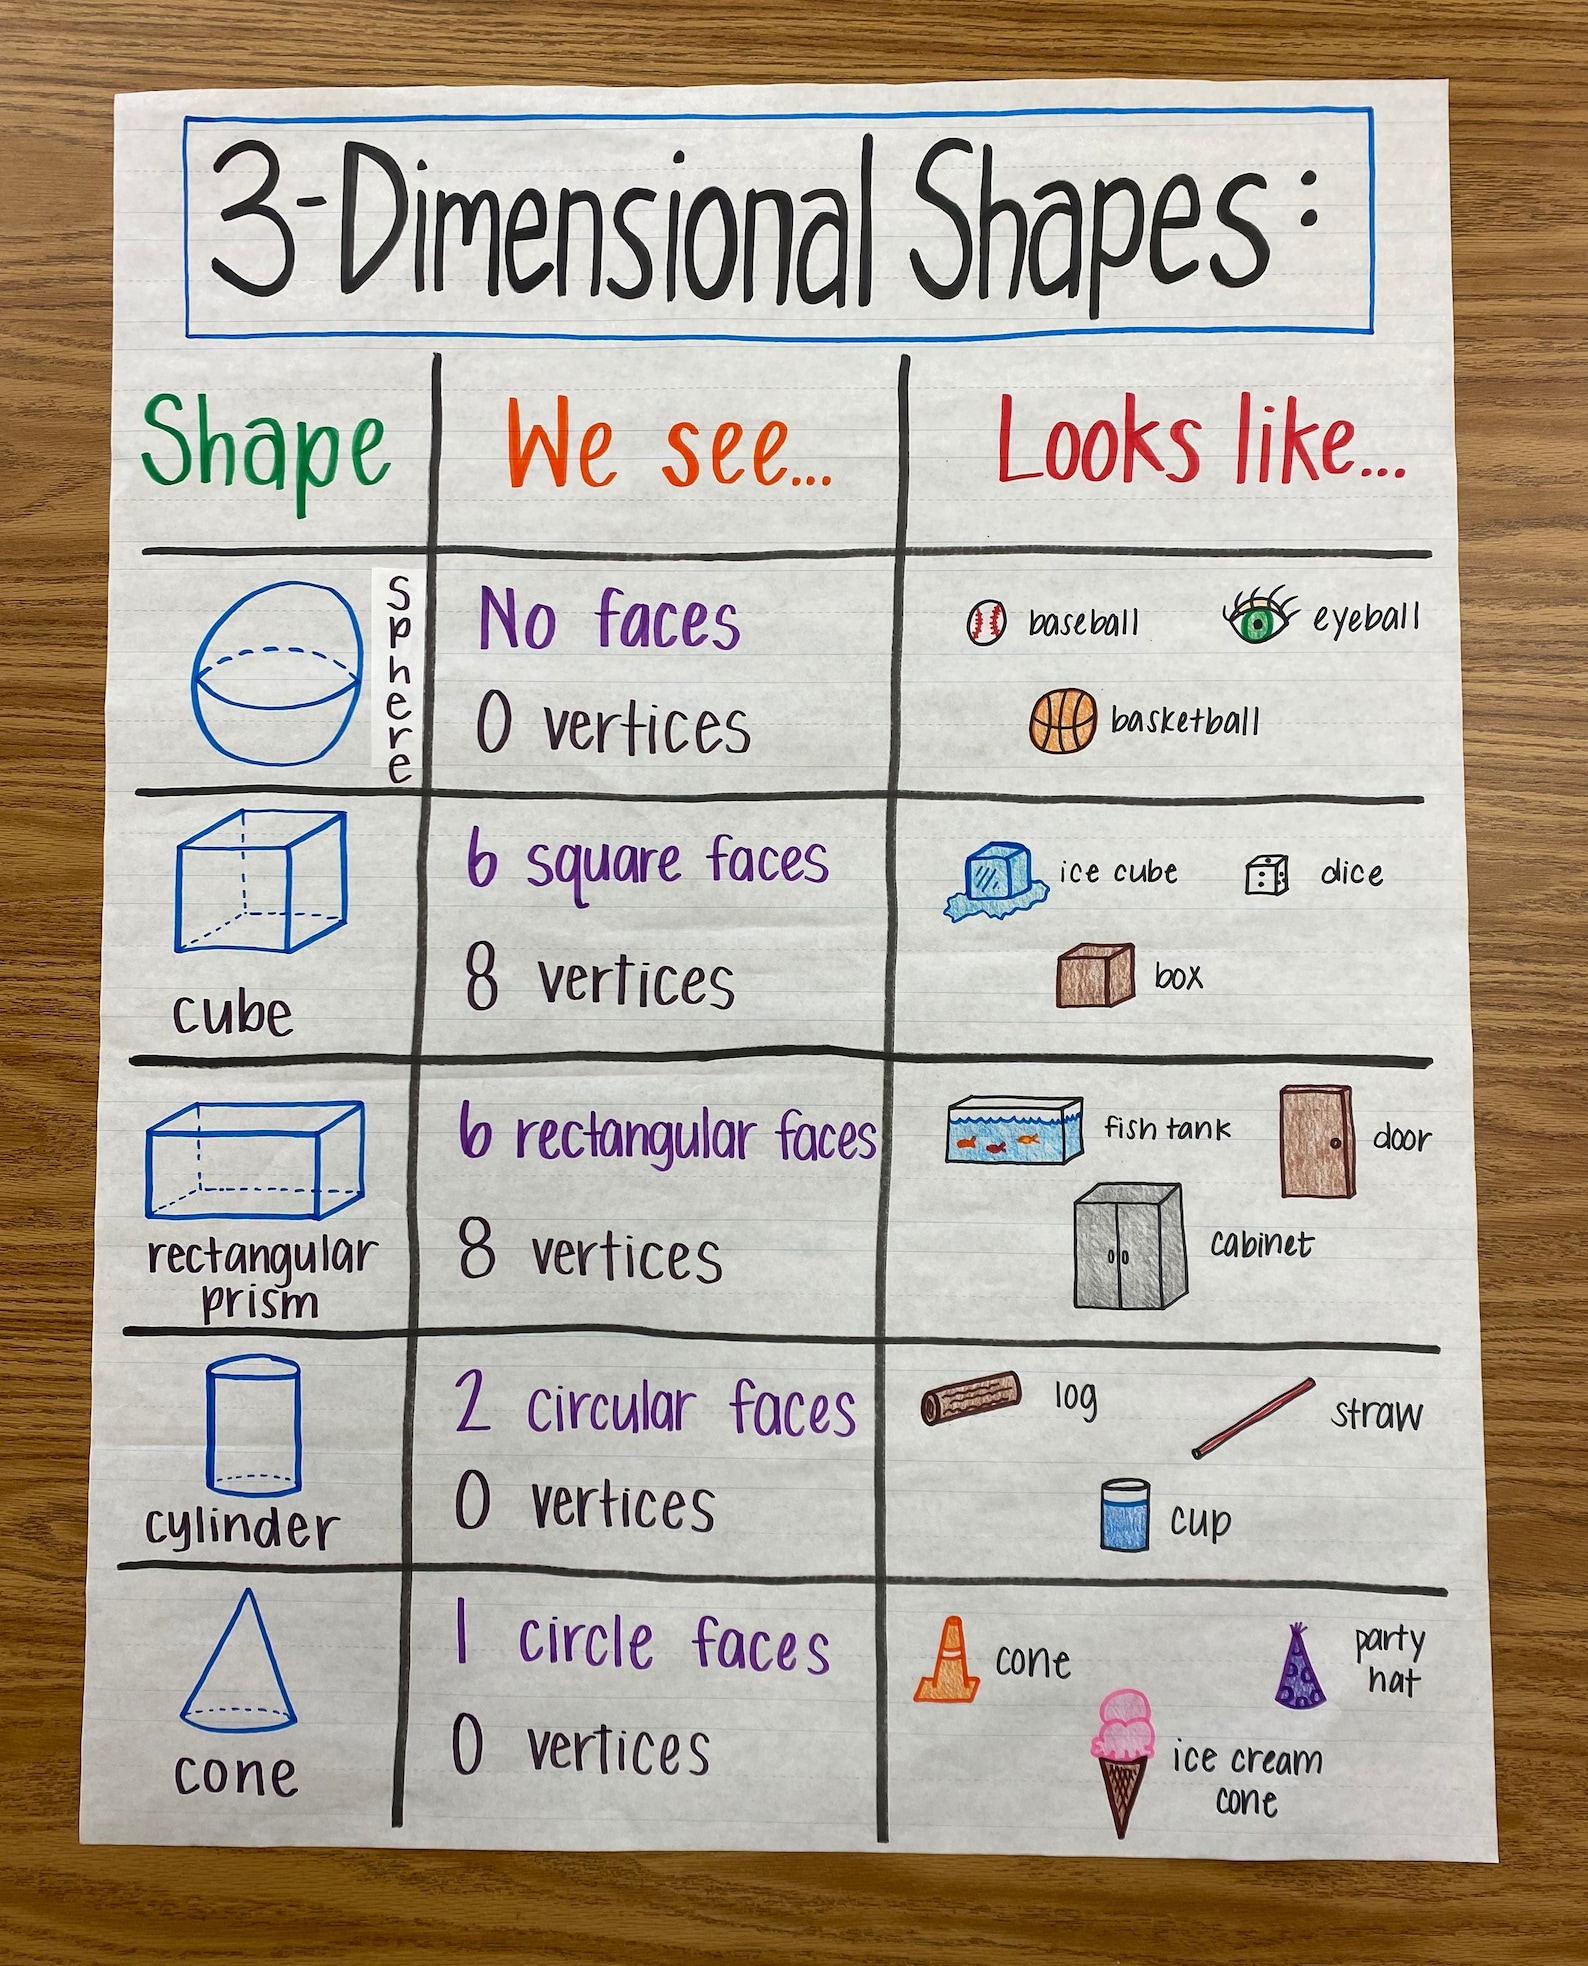 3-Dimensional Shapes:
Shape
We see...
Looks like...
Sphere
No faces
0 vertices
baseball
eyeball
basketball
cube
6 square faces
8 vertices
ice cube
dice
box
rectangular
prism
6 rectangular faces
8 vertices
fish tank
door
cabinet
cylinder
2 circular faces
0 vertices
log
straw
cup
cone
1 circle faces
0 vertices
cone
party
hat
ice cream
cone